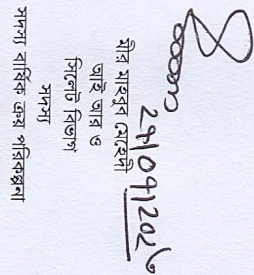 29/09/2026
মীর মাহবুব মেহেদী
আই আর ও
সিলেট বিভাগ
সদস্য
সদস্য বার্ষিক ক্রয় পরিকল্পনা